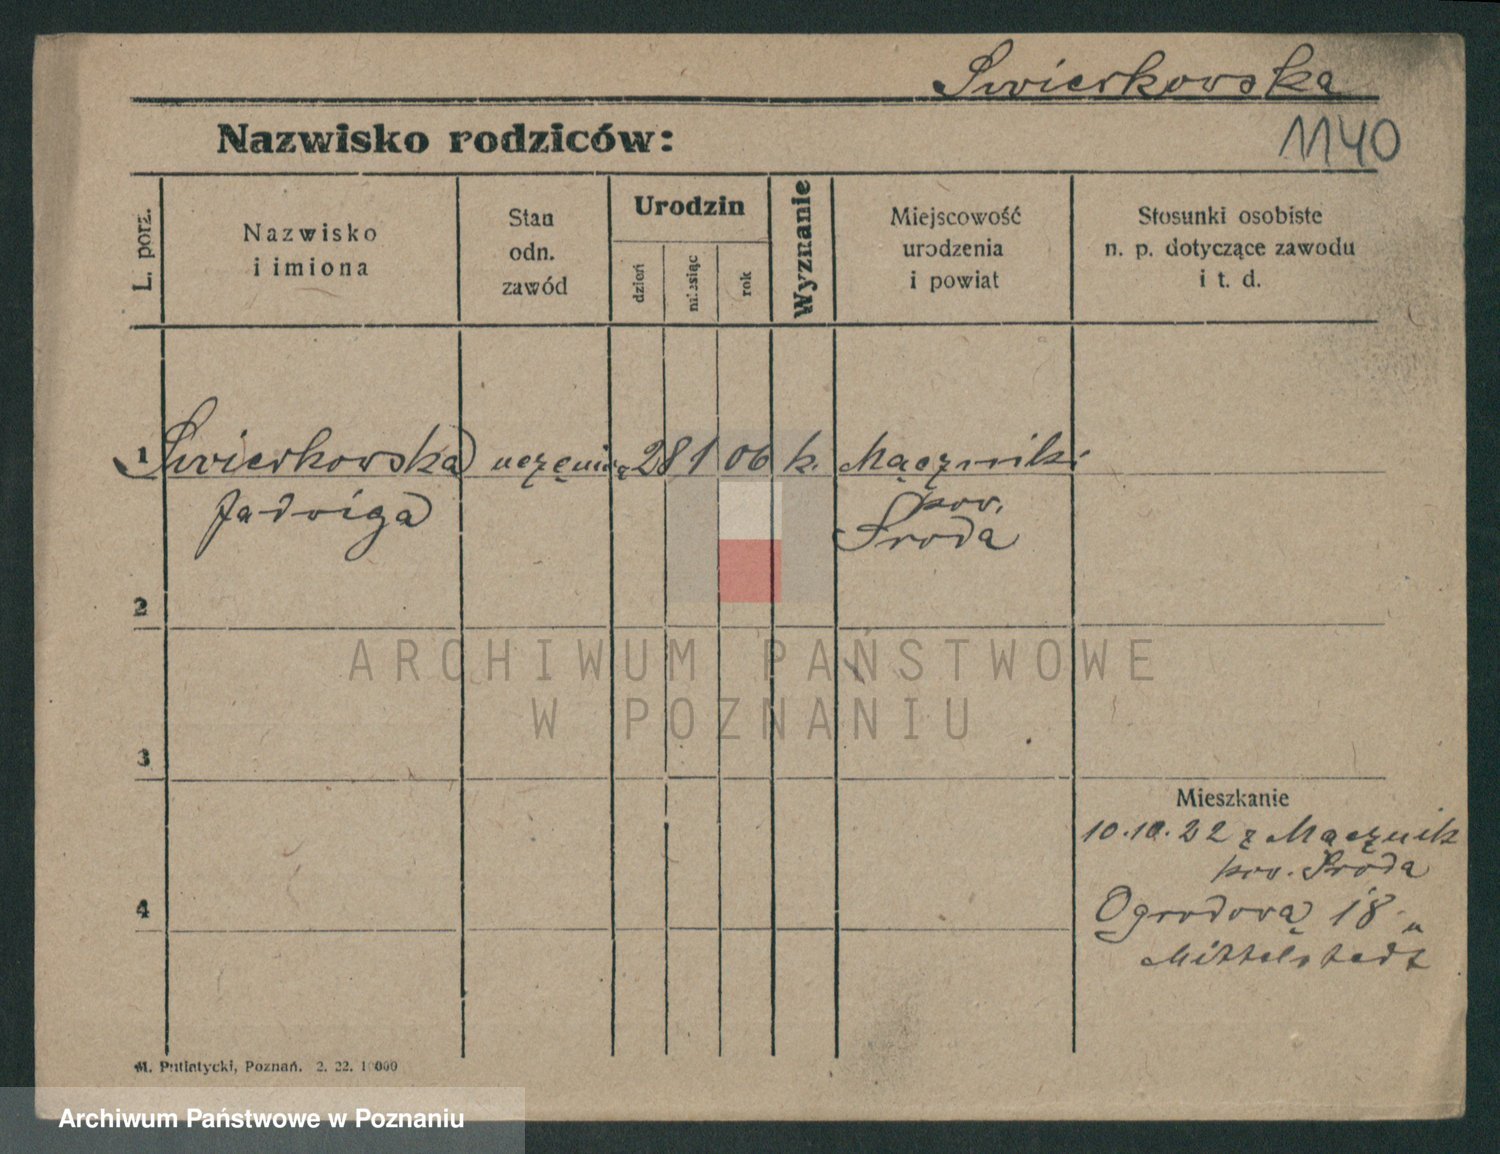 Swierkowska
Nazwisko rodziców:
1140
L. porz.
Nazwisko
i imiona
Stan
odn.
zawód
Urodzin
dzień
miesiąc
rok
Wyznanie
Miejscowość
urodzenia
i powiat
Stosunki osobiste
n. p. dotyczące zawodu
i t. d.
1 Swierkowska uczęnica 28 1 06 k. Mączniki
Jadwiga
pow.
Sroda
2
ARCHIWUM PAŃSTWOWE
W POZNANIU
3
Mieszkanie
10.10.22 z Mącznik
pow. Sroda
4
Ogrodowa 18
Mittelstedt
M. Putiatycki, Poznań. 2. 22. 10000
Archiwum Państwowe w Poznaniu